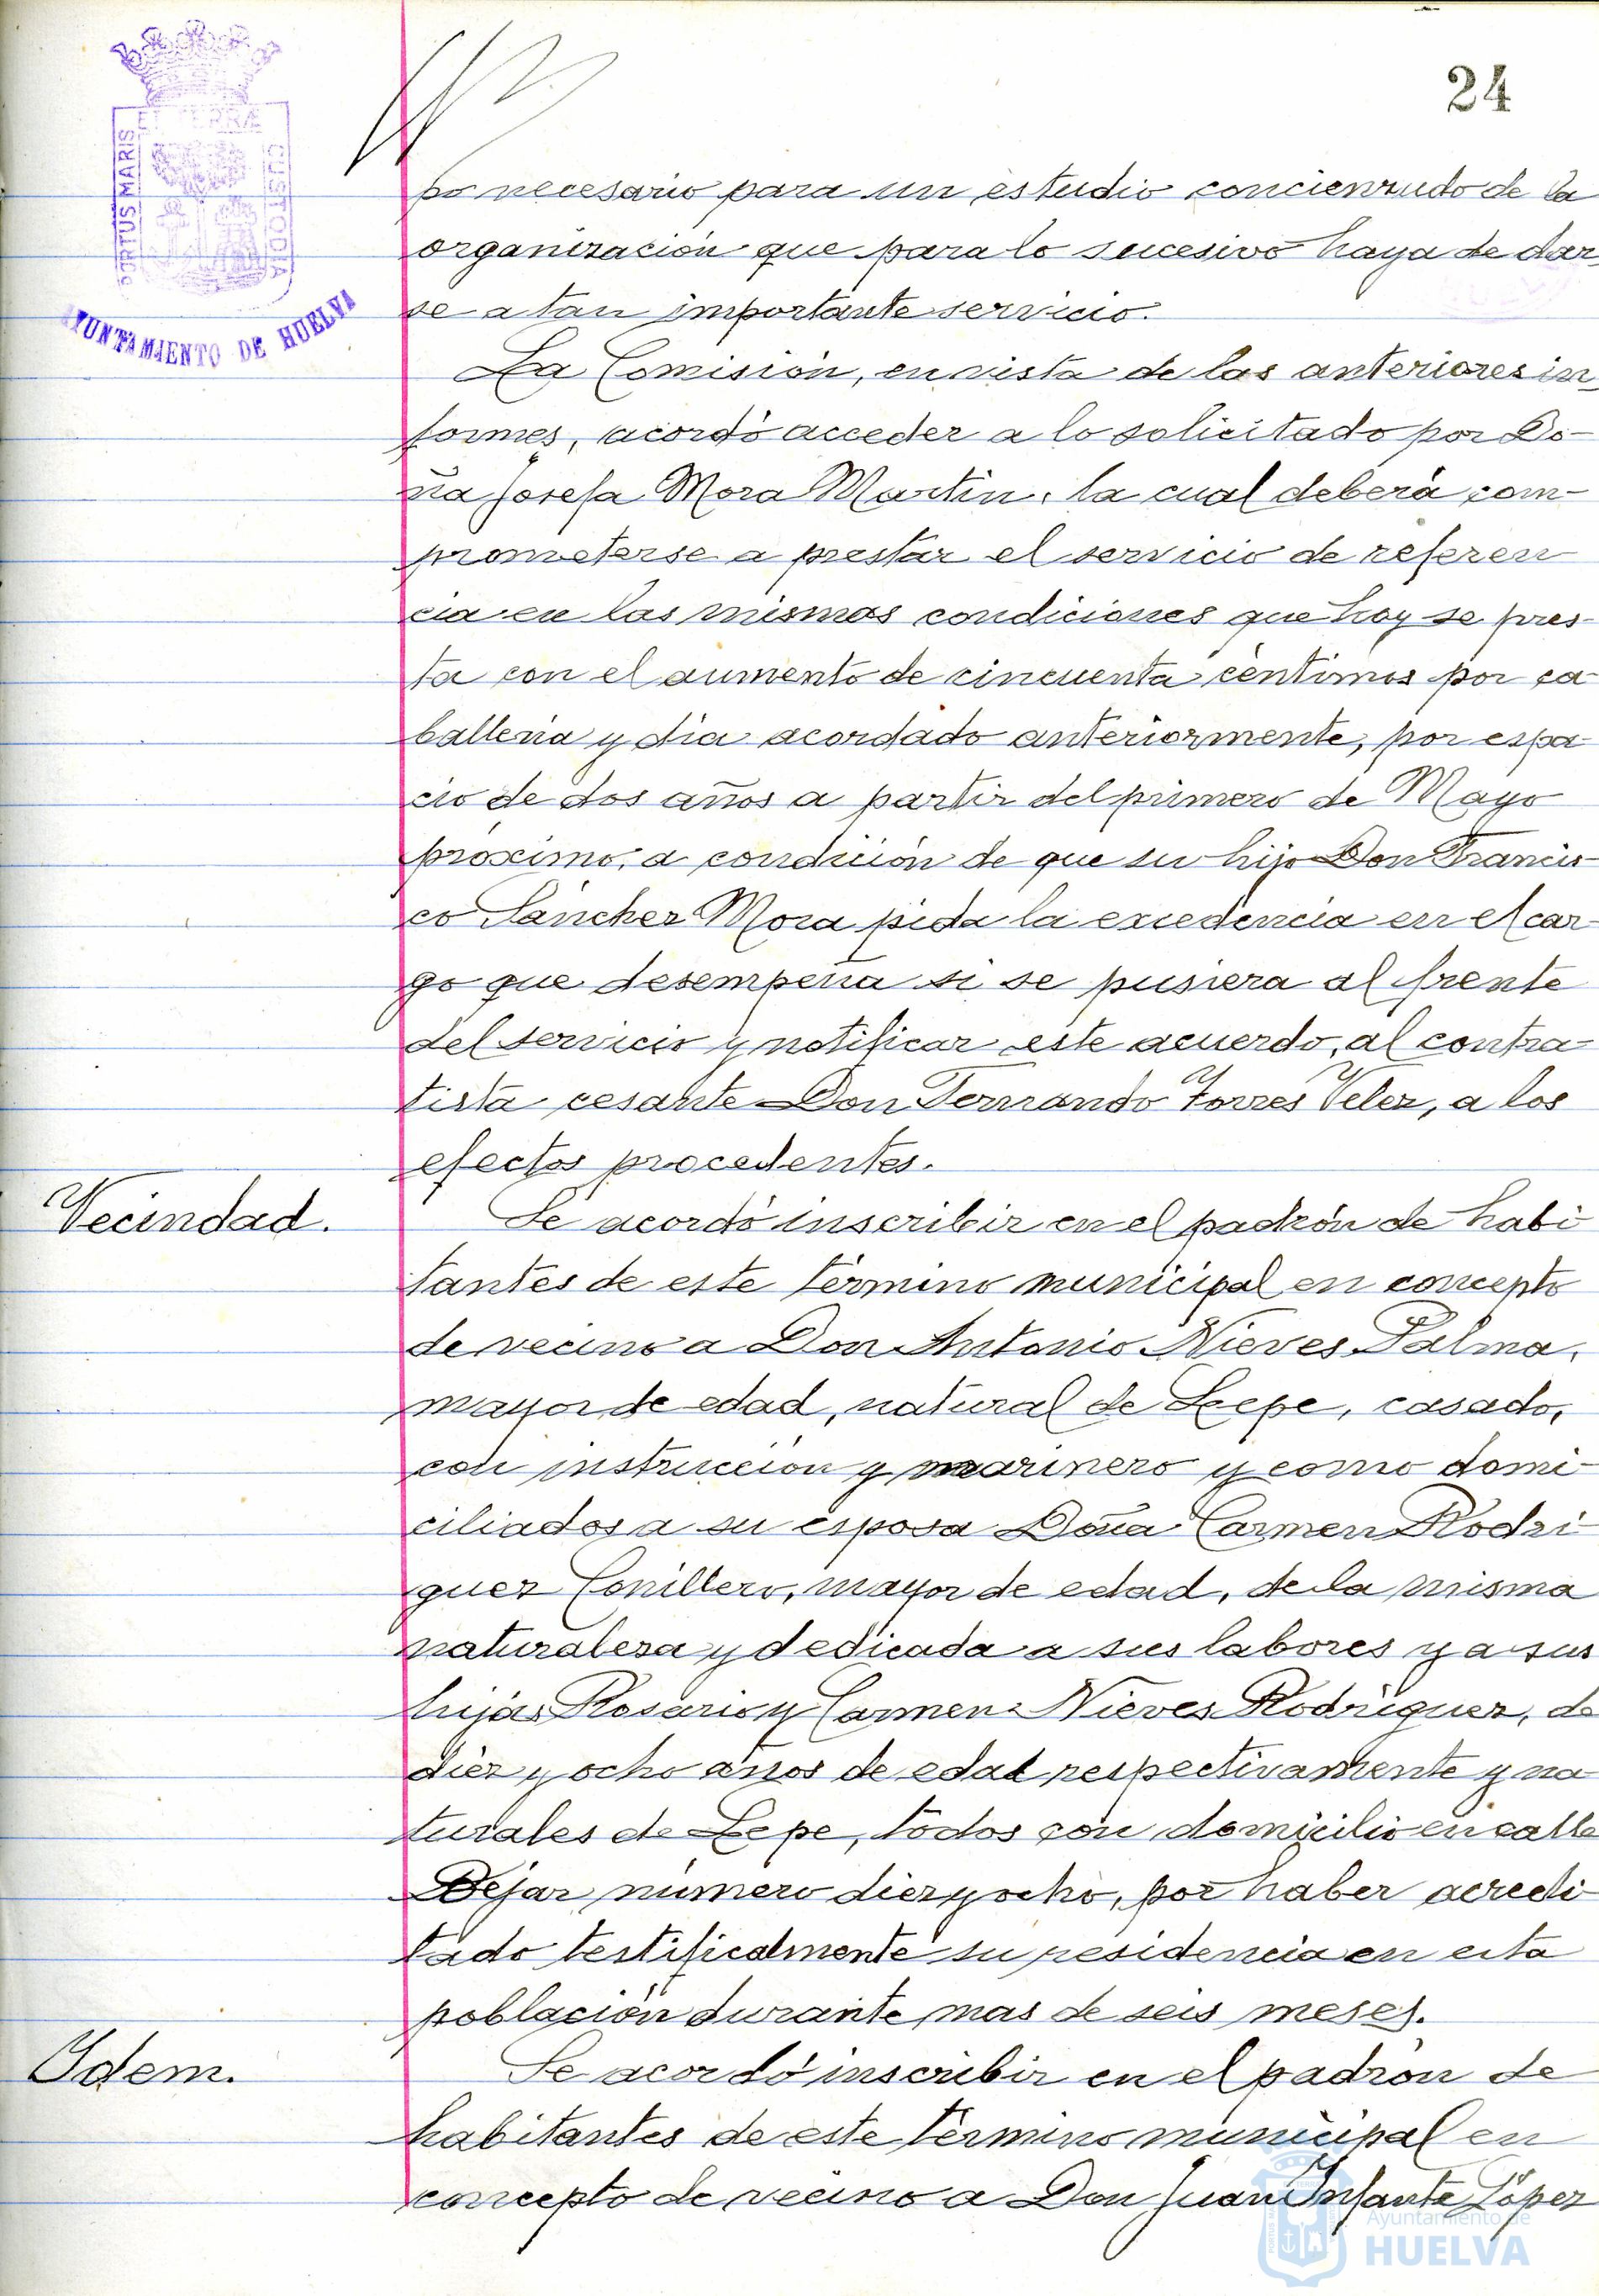 24
PORTUS MARIS
ET TERRÆ
CUSTODIA
AYUNTAMIENTO DE HUELVA
po necesario para un estudio concienzudo de la
organización que para lo sucesivo haya de dar-
se a tan importante servicio.
La Comisión, en vista de los anteriores in-
formes, acordó acceder a lo solicitado por Do-
ña Josefa Mora Martín, la cual deberá com-
prometerse a prestar el servicio de referen
cia en las mismas condiciones que hoy se pres-
ta con el aumento de cincuenta centimos por ca-
balleria y dia acordado anteriormente, por espa-
cio de dos años a partir del primero de Mayo
próximo, a condición de que su hijo Don Francis-
co Sánchez Mora pida la excedencia en el car-
go que desempeña si se pusiera al frente
del servicio y notificar este acuerdo, al contra-
tista cesante Don Fernando Torres Velez, a los
efectos procedentes.
Vecindad.
Se acordó inscribir en el padrón de habi
tantes de este término municipal en concepto
de vecino a Don Antonio Nieves Palma,
mayor de edad, natural de Lepe, casado,
con instrucción y marinero y como domi-
ciliados a su esposa Doña Carmen Rodri-
guez Conillero, mayor de edad, de la misma
naturaleza y dedicada a sus labores y a sus
hijas Rosario y Carmen Nieves Rodríguez, de
diez y ocho años de edad respectivamente y na-
turales de Lepe, todos con domicilio en calle
Bejar número diez y ocho, por haber acredi-
tado testificalmente su residencia en esta
población durante mas de seis meses.
Ydem.
Se acordó inscribir en el padrón de
habitantes de este término municipal en
concepto de vecino a Don Juan Infante López
Ayuntamiento de
HUELVA